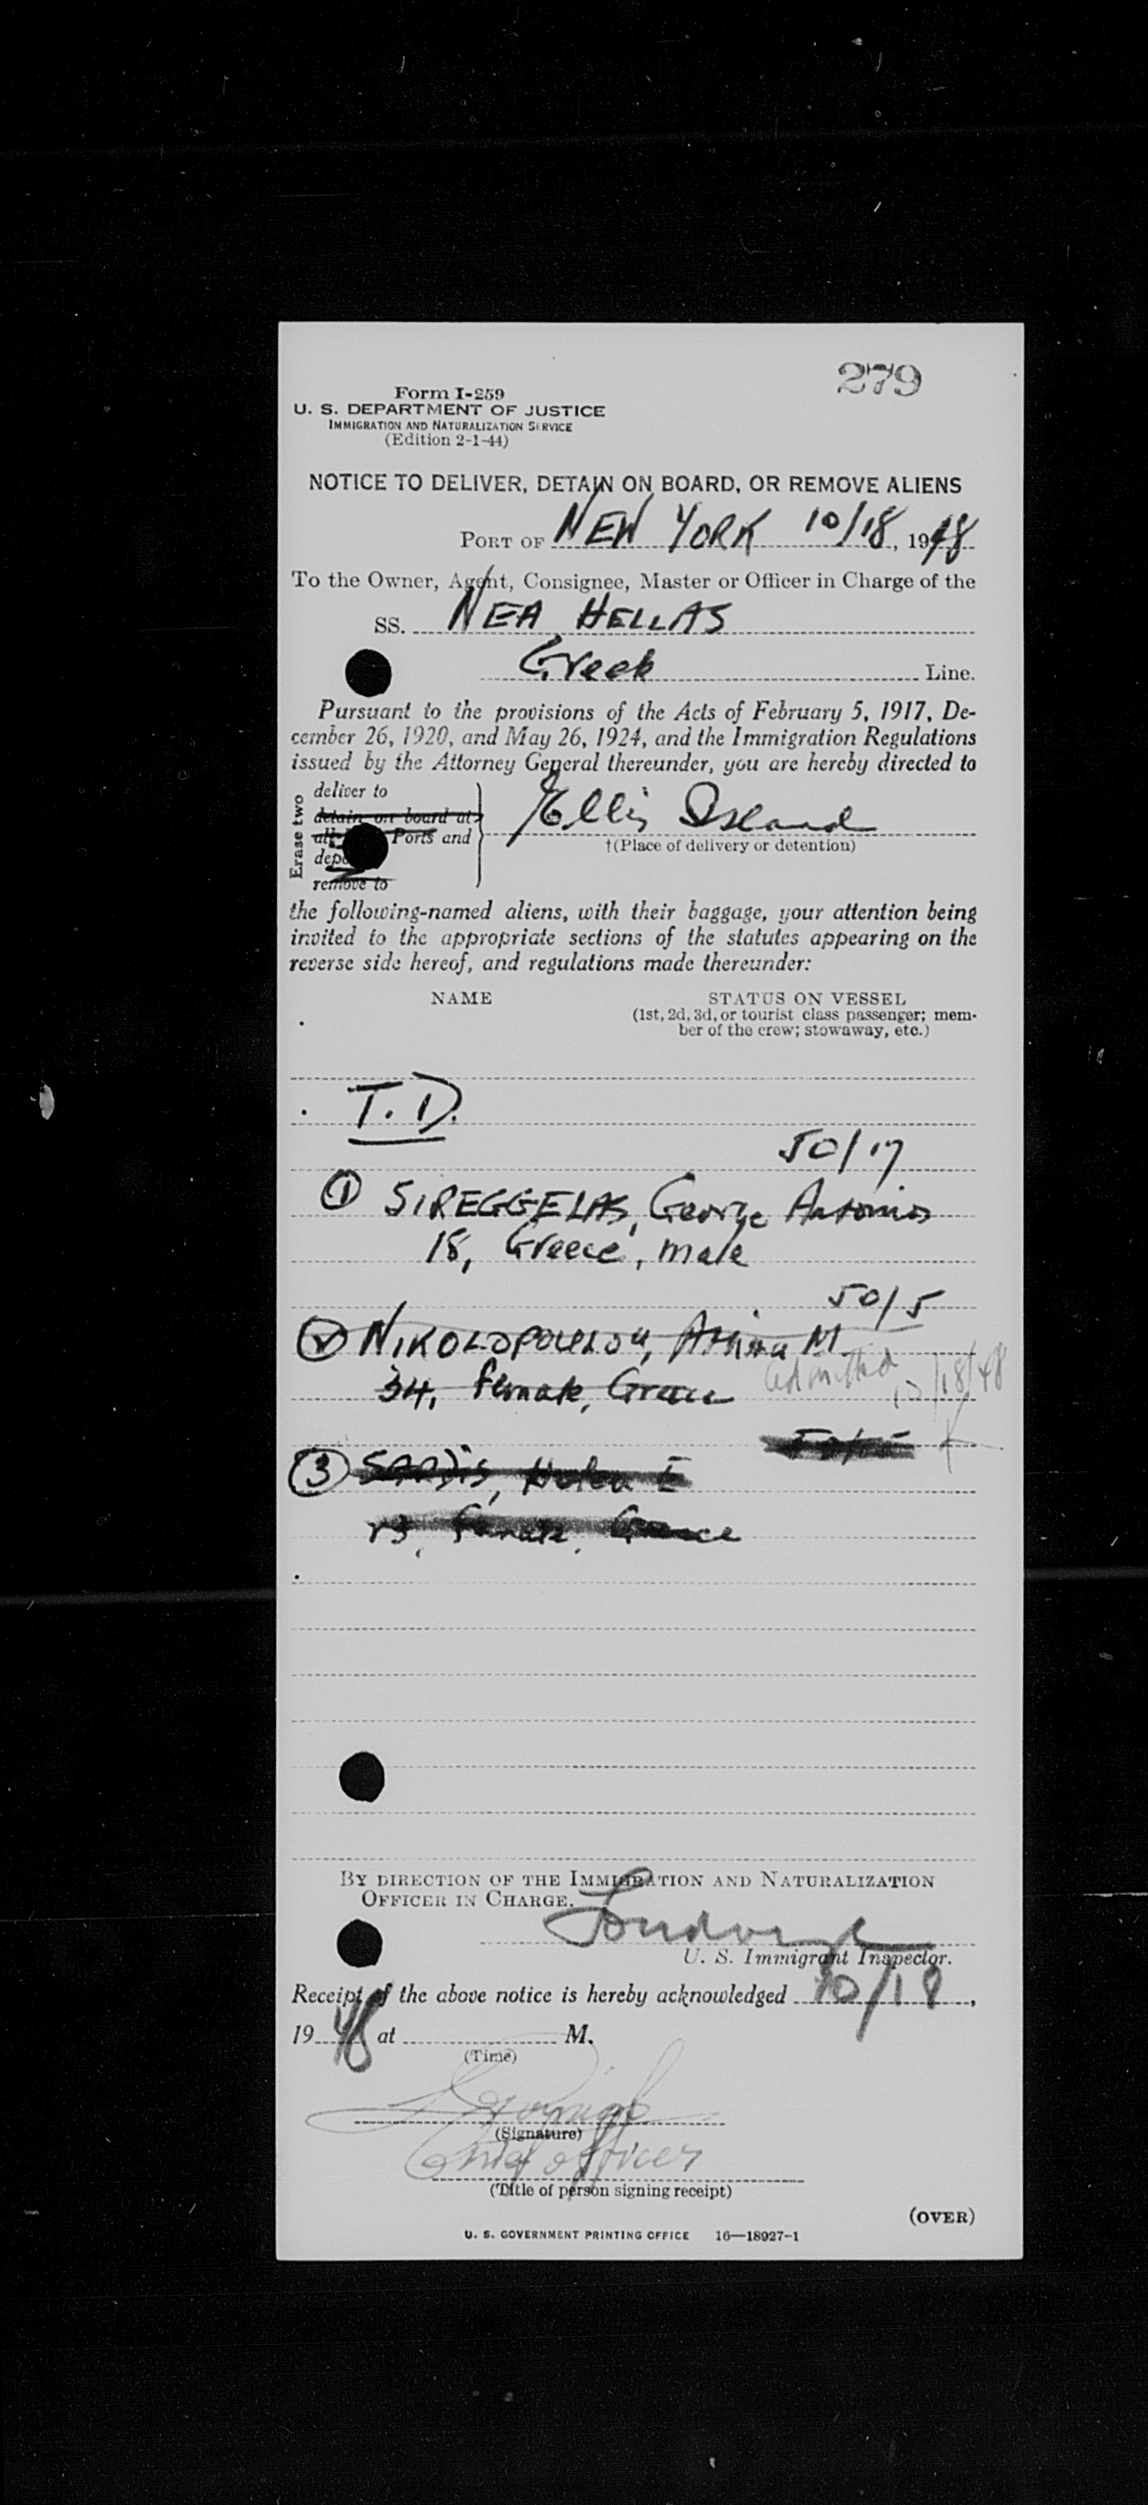 279
Form I-259
U. S. DEPARTMENT OF JUSTICE
IMMIGRATION AND NATURALIZATION SERVICE
(Edition 2-1-44)
NOTICE TO DELIVER, DETAIN ON BOARD, OR REMOVE ALIENS
PORT OF NEW YORK 10/18, 1948
To the Owner, Agent, Consignee, Master or Officer in Charge of the
SS. NEA HELLAS
Greek Line.
Pursuant to the provisions of the Acts of February 5, 1917, De-
cember 26, 1920, and May 26, 1924, and the Immigration Regulations
issued by the Attorney General thereunder, you are hereby directed to
Erase two
deliver to
detain on board at
Ports and
remove to
Ellis Island
†(Place of delivery or detention)
the following-named aliens, with their baggage, your attention being
invited to the appropriate sections of the statutes appearing on the
reverse side hereof, and regulations made thereunder:
NAME STATUS ON VESSEL
(1st, 2d, 3d, or tourist class passenger; mem-
ber of the crew; stowaway, etc.)
T. D.
50/17
1 SIREGGELAS, George Antonios
18, Greece, male
50/5
2 NIKOLOPOULOU, M.
Admitted 10/18/48
34, Female, Greece
3 SARDIS, Helen E
23, Female, Greece
BY DIRECTION OF THE IMMIGRATION AND NATURALIZATION
OFFICER IN CHARGE.
U. S. Immigrant Inspector.
Receipt of the above notice is hereby acknowledged 10/18,
1948 at M.
(Time)
(Signature)
Chief officer
(Title of person signing receipt)
(OVER)
U. S. GOVERNMENT PRINTING OFFICE 16—18927-1